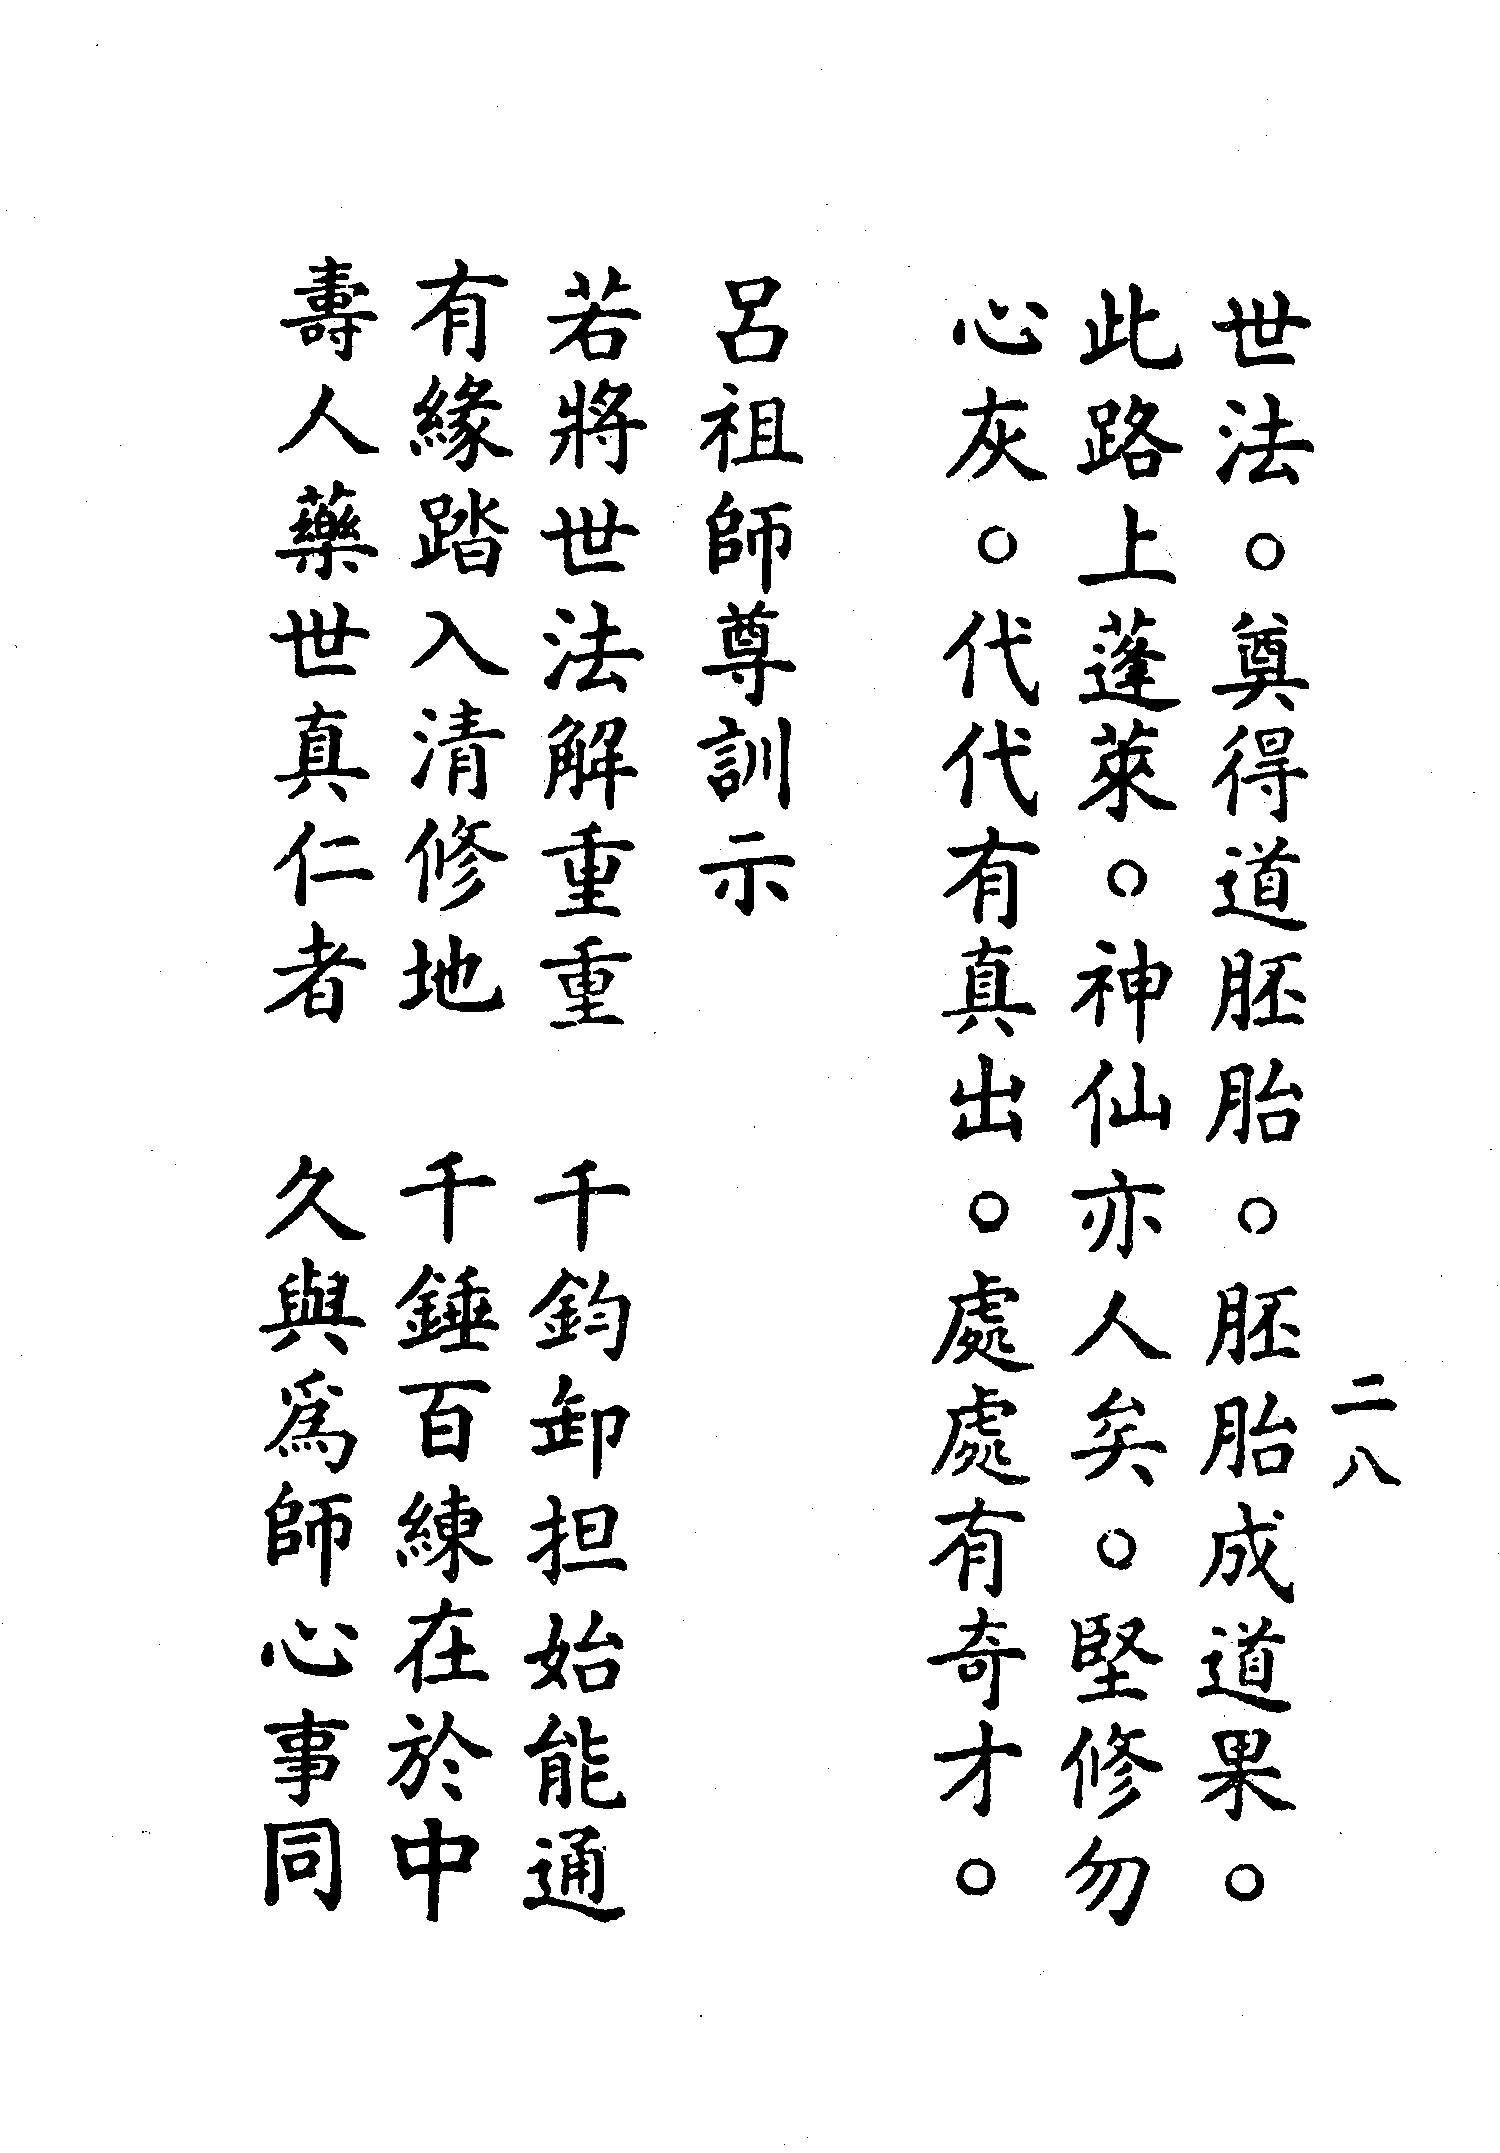 二八
世法。奠得道胚胎。胚胎成道果。
此路上蓬萊。神仙亦人矣。堅修勿
心灰。代代有真出。處處有奇才。
呂祖師尊訓示
若將世法解重重　千鈞卸担始能通
有緣踏入清修地　千錘百練在於中
壽人藥世真仁者　久與為師心事同